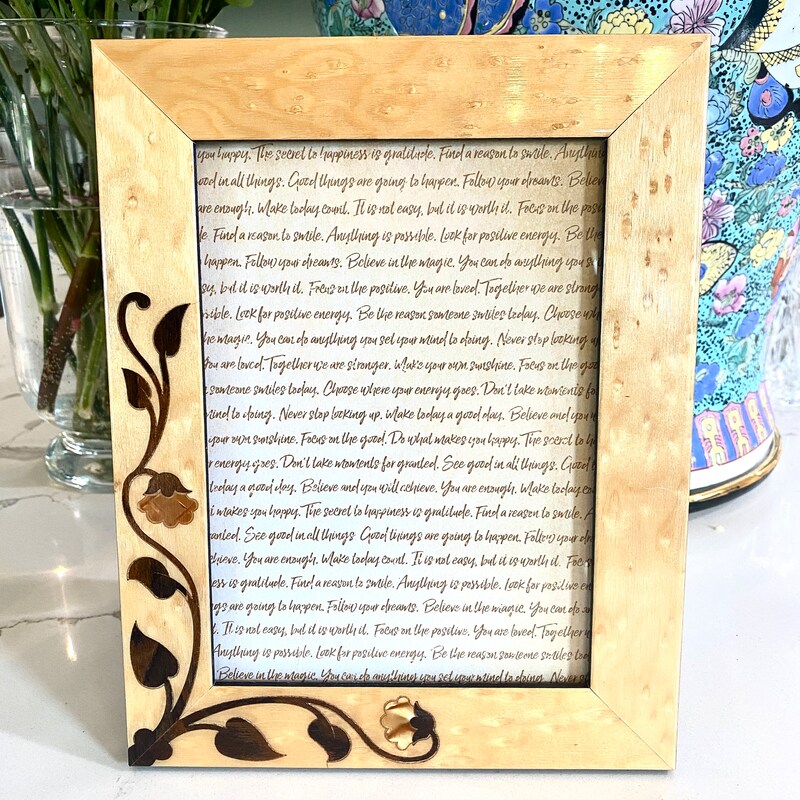 you happy. The secret to happiness is gratitude. Find a reason to smile. Anything
ood in all things. Good things are going to happen. Follow your dreams. Believ
are enough. Make today count. It is not easy, but it is worth it. Focus on the posi
e. Find a reason to smile. Anything is possible. Look for positive energy. Be the
happen. Follow your dreams. Believe in the magic. You can do anything you s
sy, but it is worth it. Focus on the positive. You are loved. Together we are strong
sible. Look for positive energy. Be the reason someone smiles today. Choose wh
he magic. You can do anything you set your mind to doing. Never stop looking u
You are loved. Together we are stronger. Make your own sunshine. Focus on the goo
someone smiles today. Choose where your energy goes. Don't take moments f
mind to doing. Never stop looking up. Make today a good day. Believe and you w
your own sunshine. Focus on the good. Do what makes you happy. The secret to h
r energy goes. Don't take moments for granted. See good in all things. Good
today a good day. Believe and you will achieve. You are enough. Make today co
t makes you happy. The secret to happiness is gratitude. Find a reason to smile. A
anted. See good in all things. Good things are going to happen. Follow your dr
chieve. You are enough. Make today count. It is not easy, but it is worth it. Focus
ess is gratitude. Find a reason to smile. Anything is possible. Look for positive en
gs are going to happen. Follow your dreams. Believe in the magic. You can do a
t. It is not easy, but it is worth it. Focus on the positive. You are loved. Together w
Anything is possible. Look for positive energy. Be the reason someone smiles tod
Believe in the magic. You can do anything you set your mind to doing. Never s